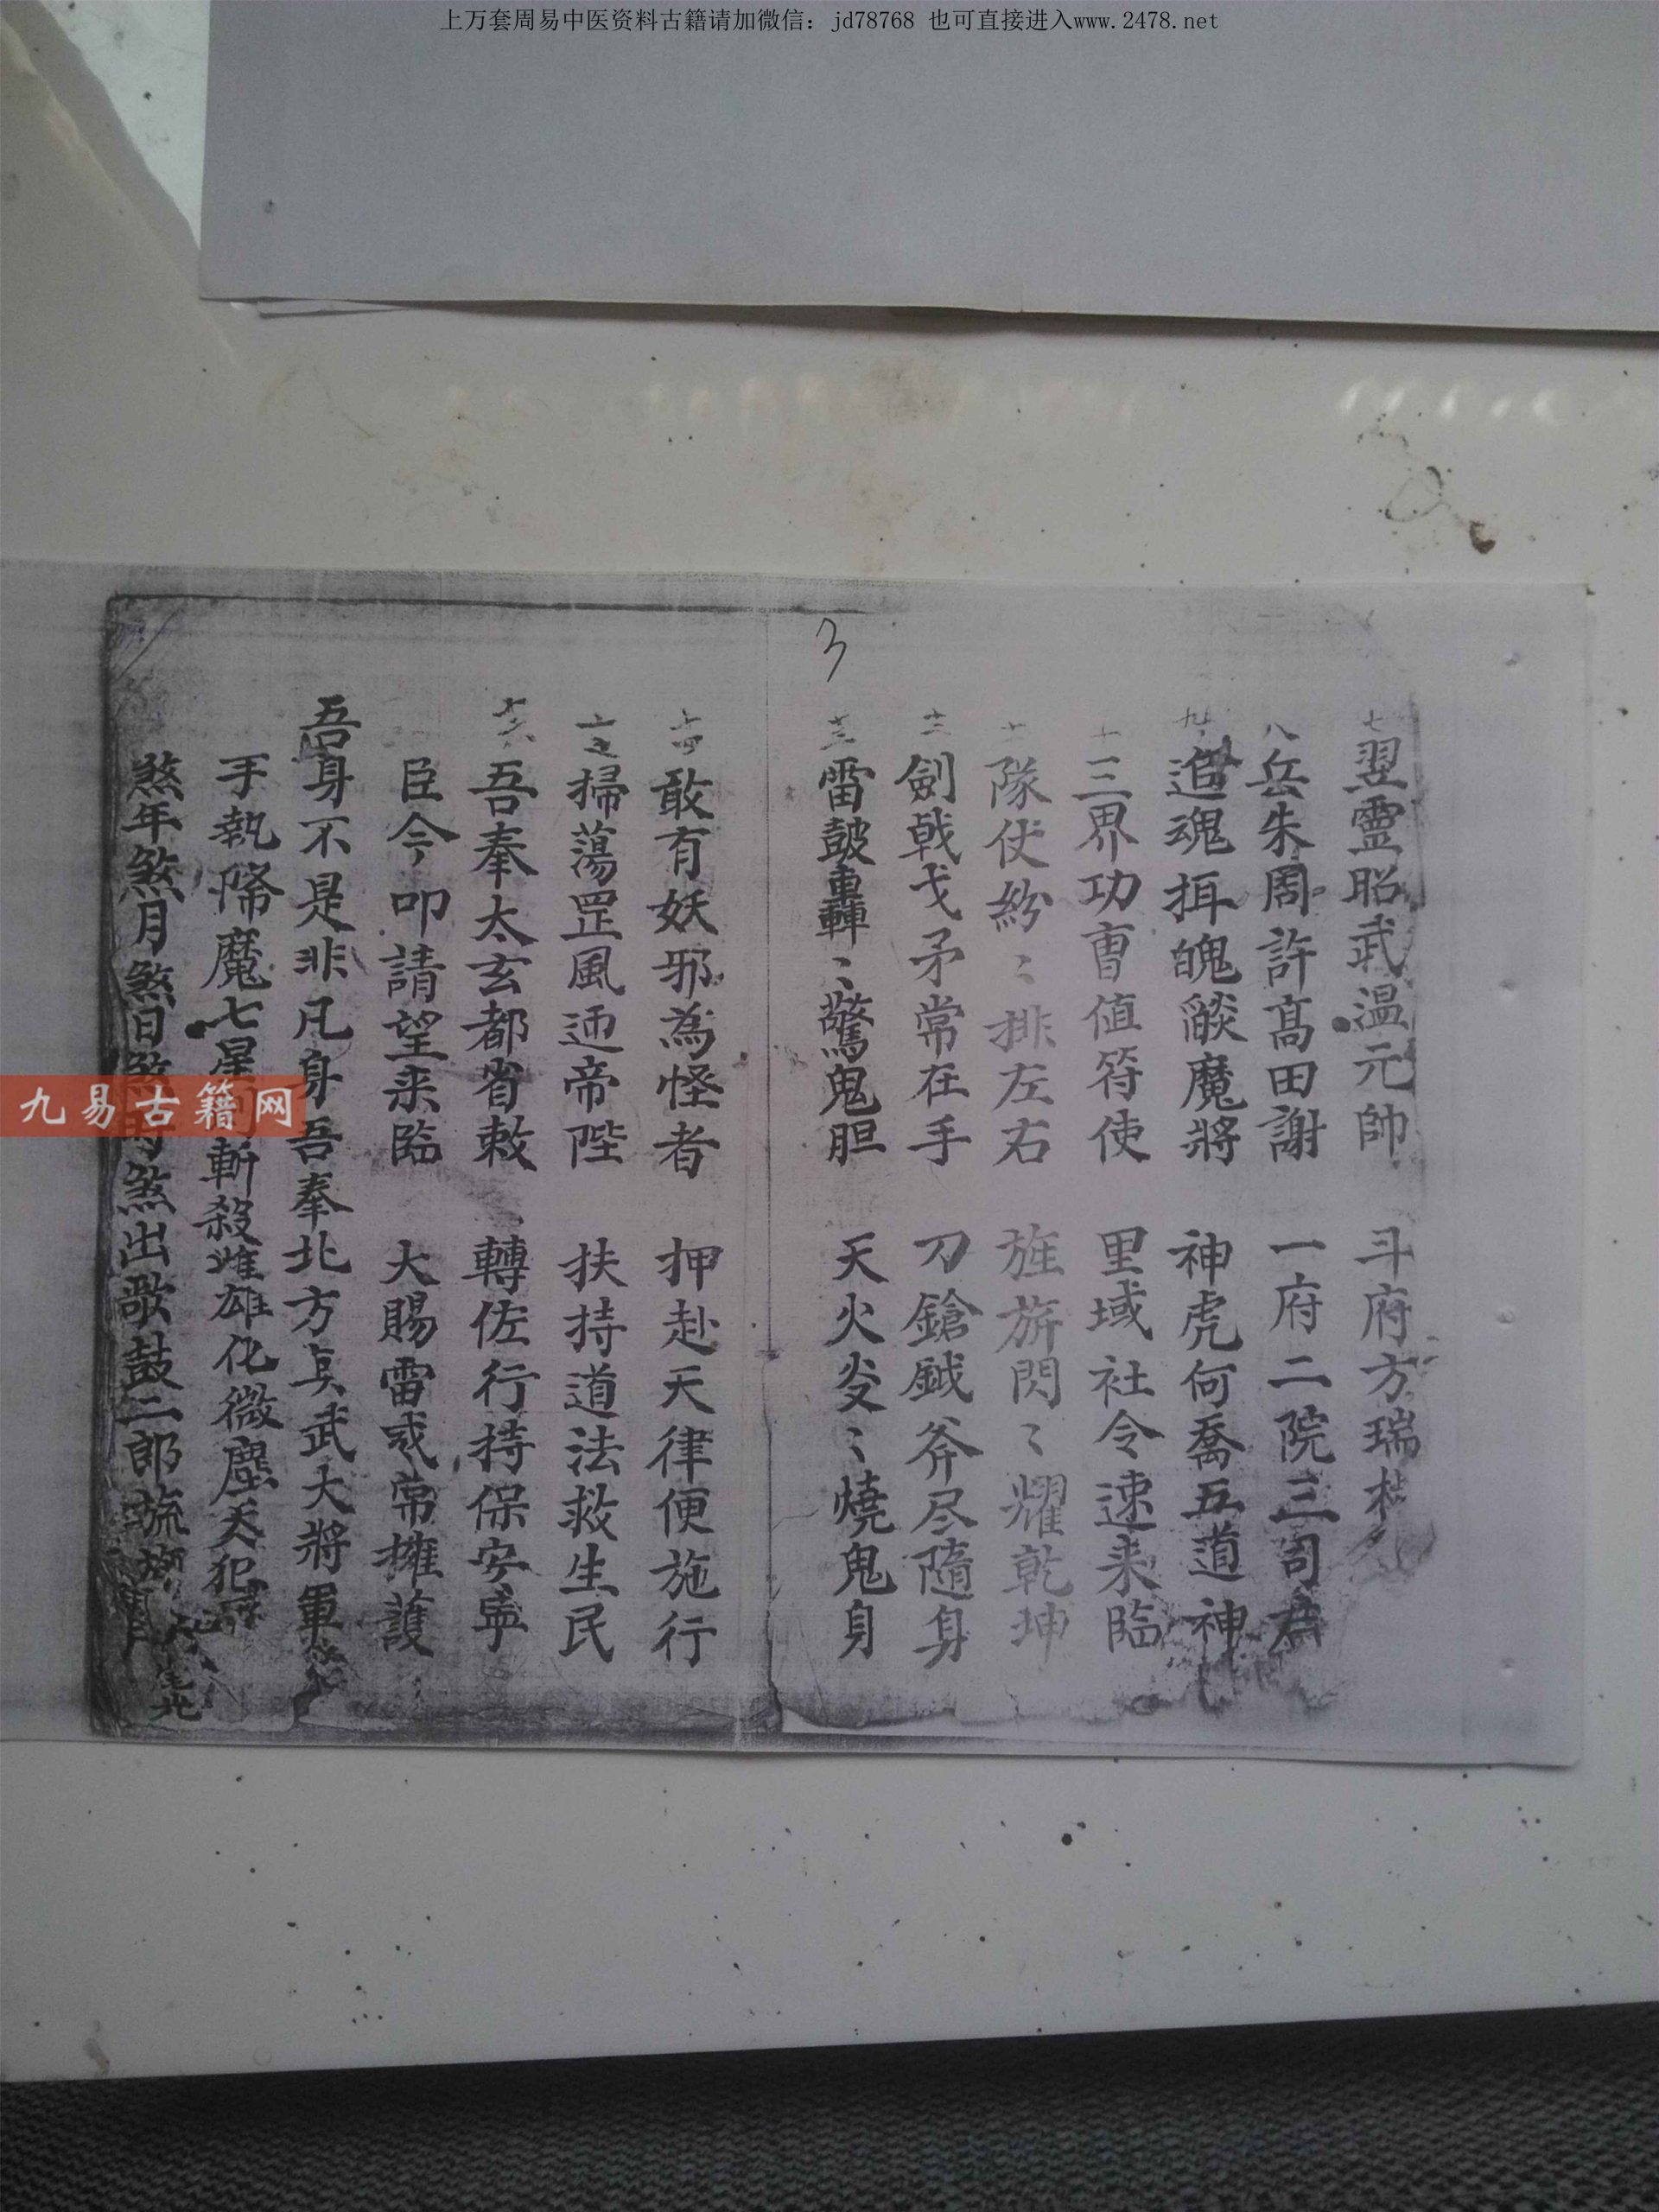 上万套周易中医资料古籍请加微信：jd78768 也可直接进入www.2478.net
3
七 翌靈昭武温元帥 斗府方瑞
八 岳朱周許髙田謝 一府二院三司
九 追魂抇魄䤴魔將 神虎何喬五道神
十 三界功曺值符使 里域社令速来臨
十一 隊仗紛〻排左右 旌旂閃〻耀乾坤
十二 劍戟戈矛常在手 刀鎗鉞斧尽隨身
十三 雷皷轟〻驚鬼胆 天火炎〻燒鬼身
十四 敢有妖邪為怪者 押赴天律便施行
十五 掃蕩罡風迊帝陛 扶持道法救生民
十六 吾奉太玄都省敕 轉佐行持保安寧
臣今叩請望来臨 大賜雷威常擁護
吾身不是非凡身吾奉北方真武大將軍
手執降魔七星劍斬殺雄化微塵天犯
煞年煞月煞日煞時煞出歌鼓二郎
九易古籍网